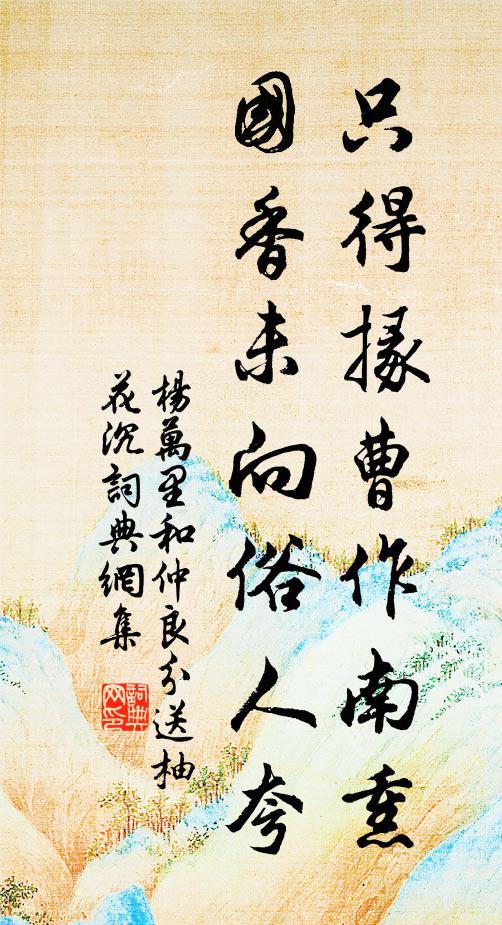 只得掾曹作南熏
國香未向俗人夸
楊萬里和仲良分送柚
花沉詞典網集
詞典
网印